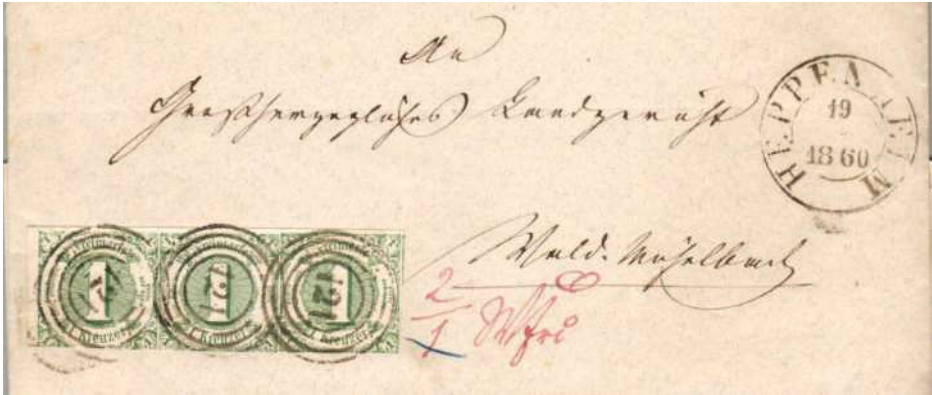 An
Großherzogliches Landgericht
HEPPENHEIM
19
1860
Wald-Michelbach
Freimarke
1
1 Kreuzer
121
Freimarke
1
1 Kreuzer
121
Freimarke
1
1 Kreuzer
121
2
1